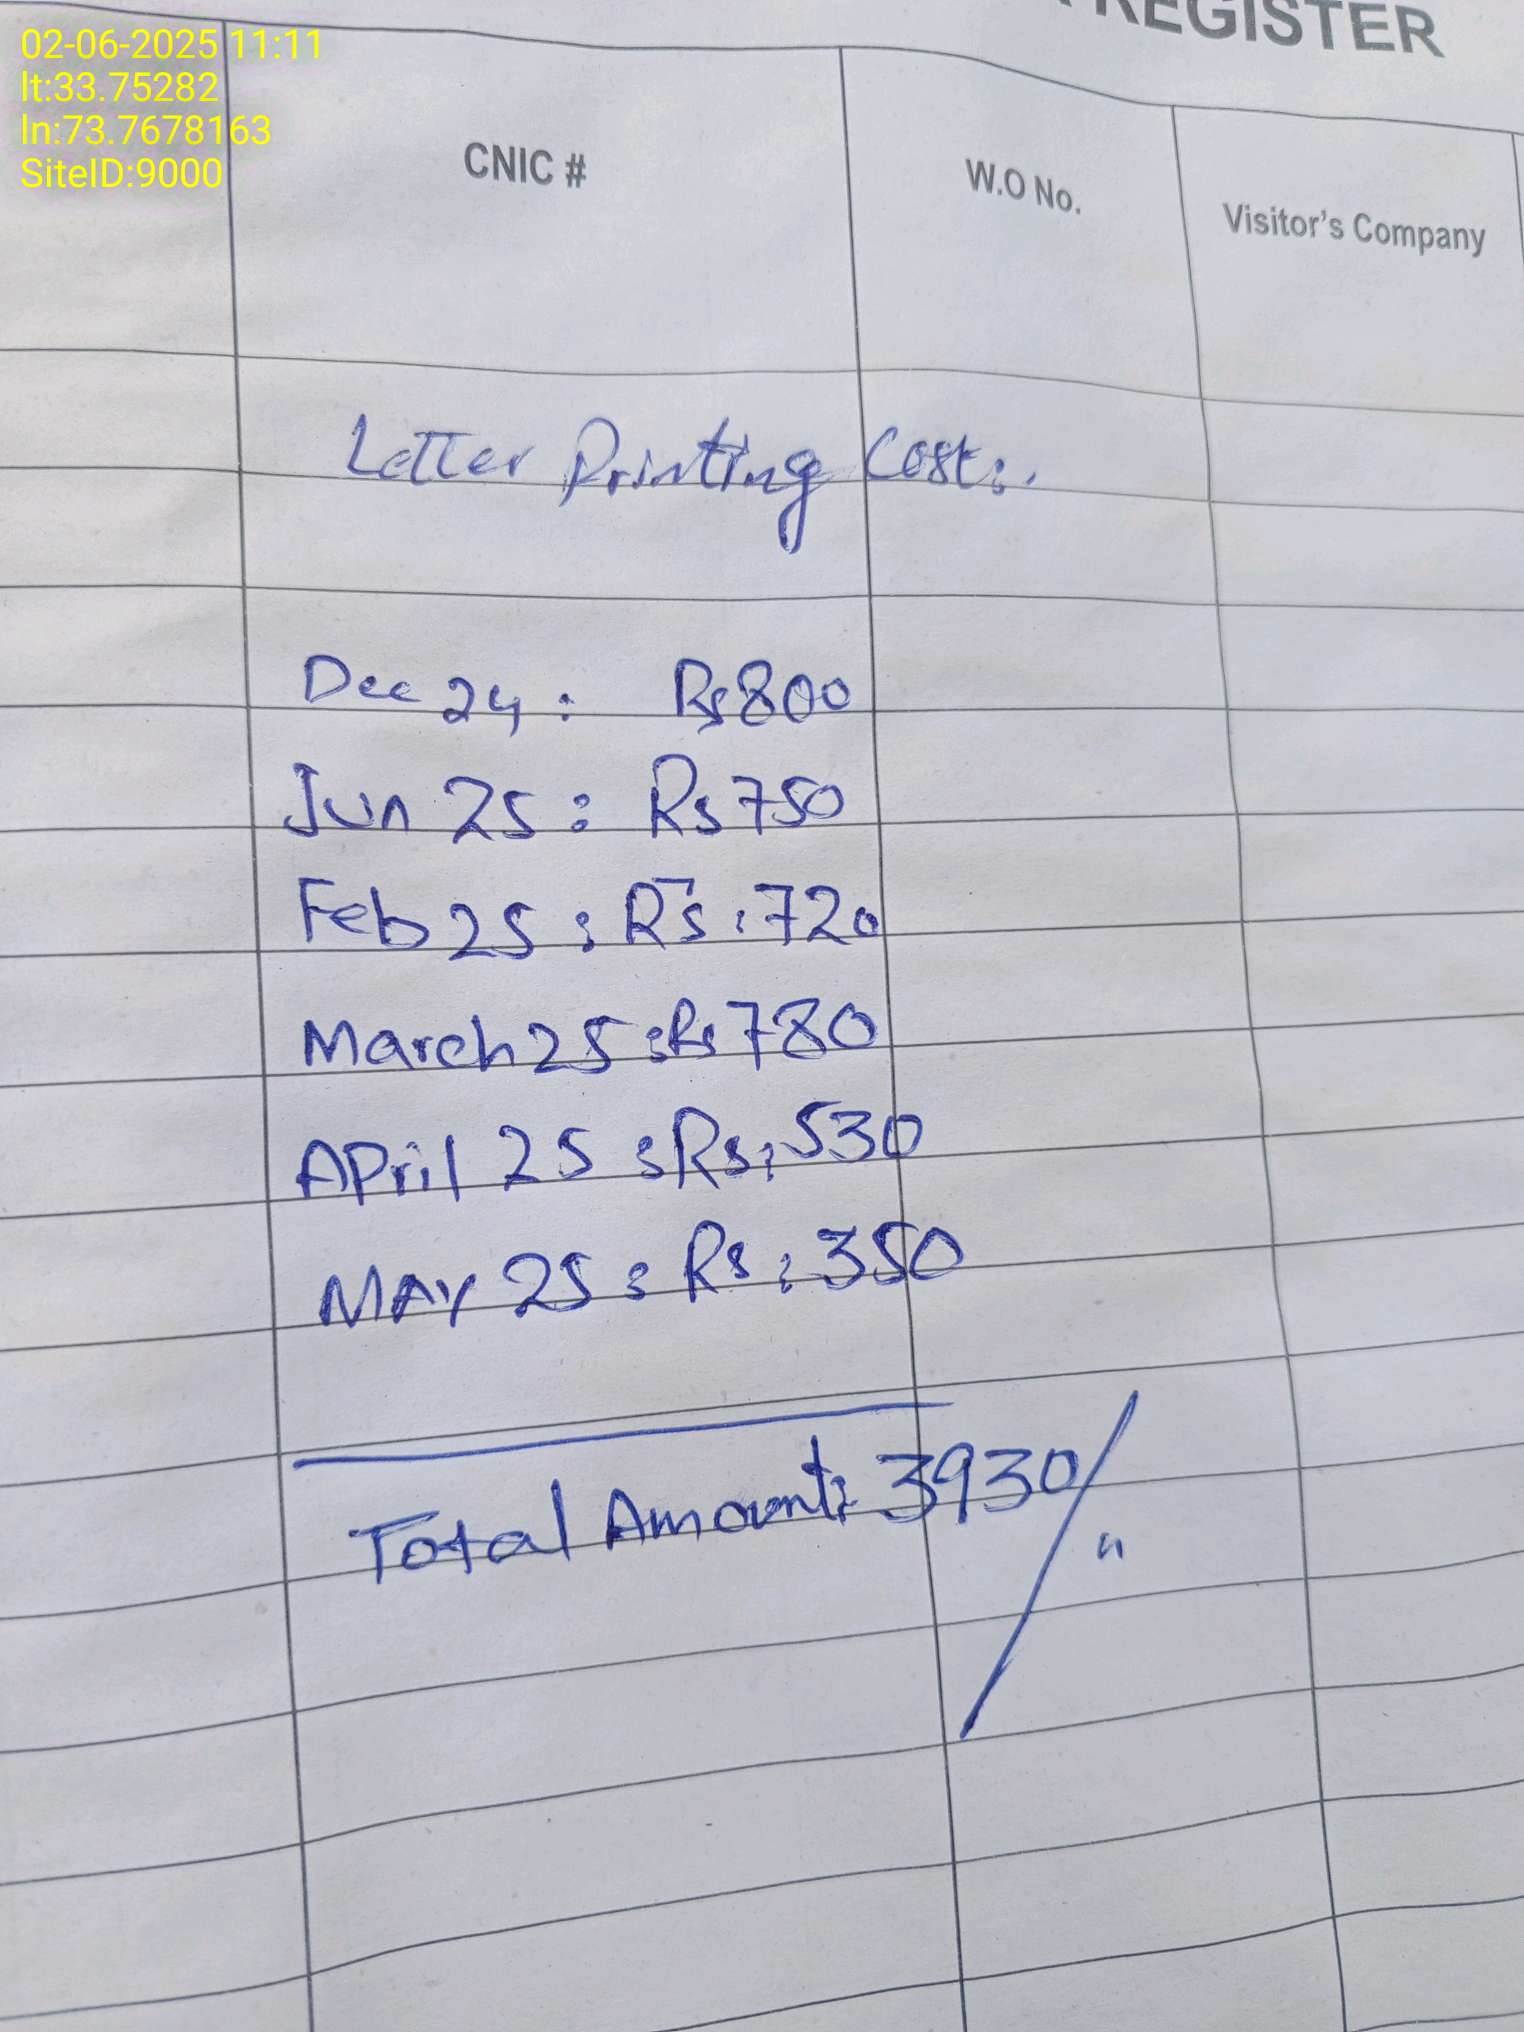 02-06-2025 11:11
lt:33.75282
ln:73.7678163
SiteID:9000
REGISTER
CNIC #
W.O No.
Visitor's Company
Letter Printing Cost:.
Dec 24 : Rs 800
Jun 25 : Rs 750
Feb 25 : Rs : 720
March 25 : Rs 780
APril 25 : Rs : 530
MAY 25 : Rs : 350
Total Amount: 3930/"